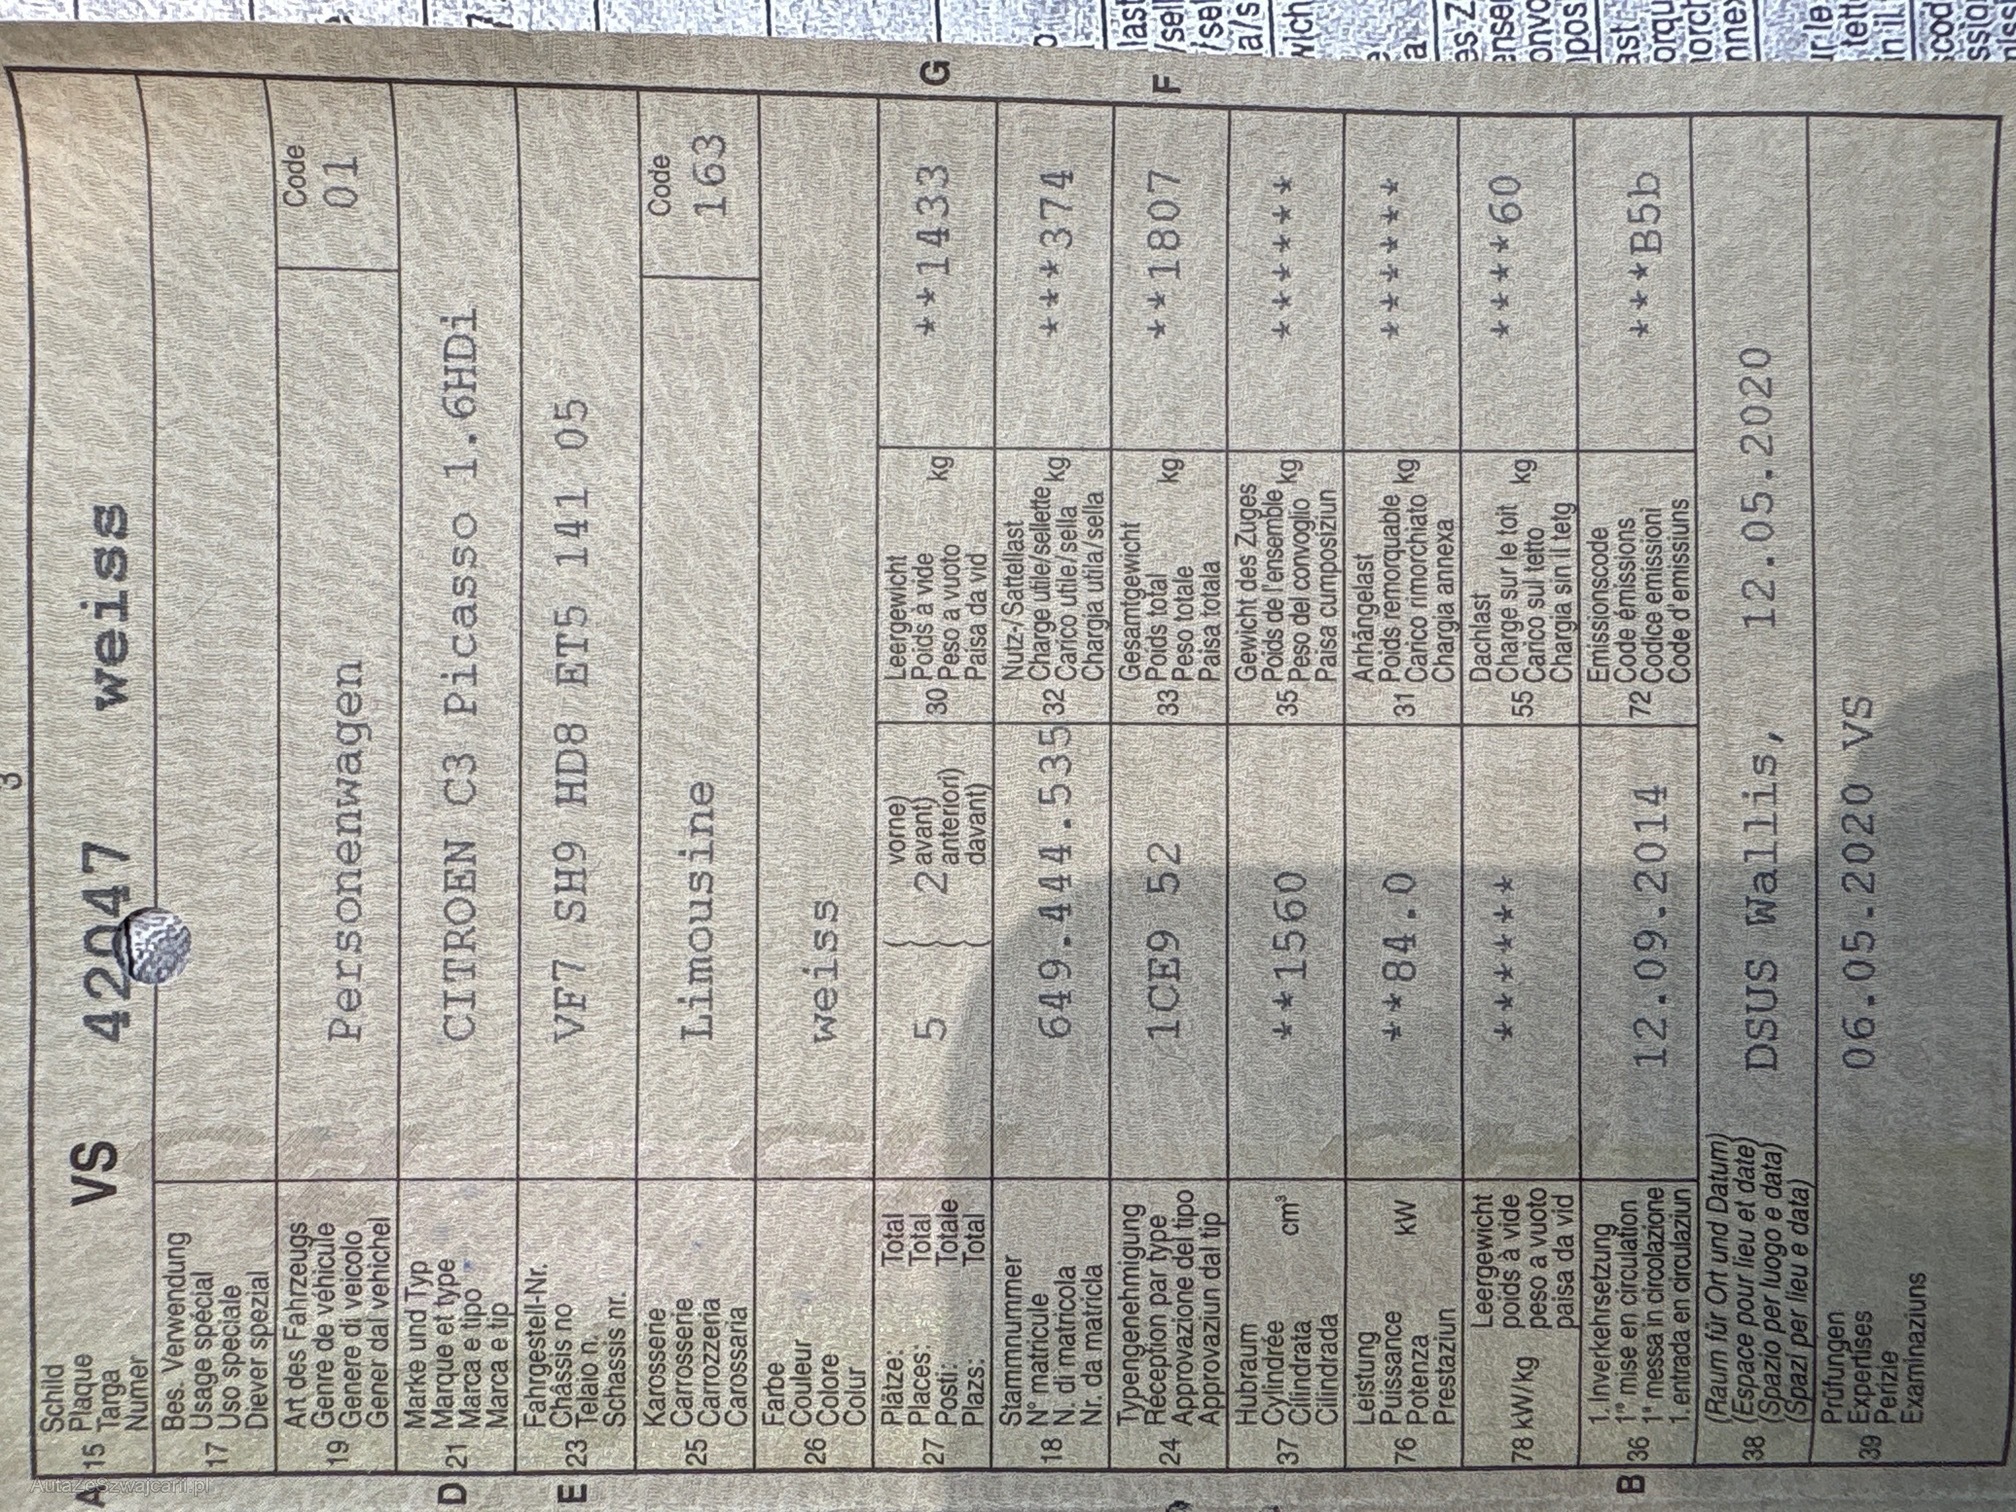 3
A
Schild
15 Plaque
Targa
Numer
VS 42047 weiss
Bes. Verwendung
Usage spécial
17 Uso speciale
Diever spezial
Art des Fahrzeugs
19 Genre de véhicule
Genere di veicolo
Gener dal vehichel
Personenwagen
Code
01
D
Marke und Typ
21 Marque et type
Marca e tipo
Marca e tip
CITROEN C3 Picasso 1.6HDi
E
Fahrgestell-Nr.
23 Châssis no
Telaio n.
Schassis nr.
VF7 SH9 HD8 ET5 141 05
Karosserie
25 Carrosserie
Carrozzeria
Carossaria
Limousine
Code
163
Farbe
26 Couleur
Colore
Colur
weiss
27
Plätze: Total
Places: Total
Posti: Totale
Plazs: Total
5 { 2
vorne)
avant)
anteriori)
davant)
Leergewicht
30 Poids à vide
Peso a vuoto kg
Paisa da vid
**1433
G
Stammnummer
18 N° matricule
N. di matricola
Nr. da matricla
649.444.535
Nutz-/Sattellast
32 Charge utile/sellette kg
Carico utile/sella
Chargia utila/sella
***374
Typengenehmigung
24 Réception par type
Approvazione del tipo
Approvaziun dal tip
1CE9 52
Gesamtgewicht
33 Poids total kg
Peso totale
Paisa totala
**1807
F
Hubraum
37 Cylindrée cm³
Cilindrata
Cilindrada
**1560
Gewicht des Zuges
35 Poids de l'ensemble kg
Peso del convoglio
Paisa cumposiziun
******
Leistung
76 Puissance kW
Potenza
Prestaziun
**84.0
Anhängelast
31 Poids remorquable kg
Carico rimorchiato
Chargia annexa
******
78 kW/kg
Leergewicht
poids à vide
peso a vuoto
paisa da vid
******
Dachlast
55 Charge sur le toit kg
Carico sul tetto
Chargia sin il tetg
****60
B
1. Inverkehrsetzung
36 1ᵉ mise en circulation
1ª messa in circolazione
1. entrada en circulaziun
12.09.2014
Emissionscode
72 Code émissions
Codice emissioni
Code d'emissiuns
***B5b
38
(Raum für Ort und Datum)
(Espace pour lieu et date)
(Spazio per luogo e data)
(Spazi per lieu e data)
DSUS Wallis, 12.05.2020
39
Prüfungen
Expertises
Perizie
Examinaziuns
06.05.2020 VS
AutaZeSzwajcarii.pl